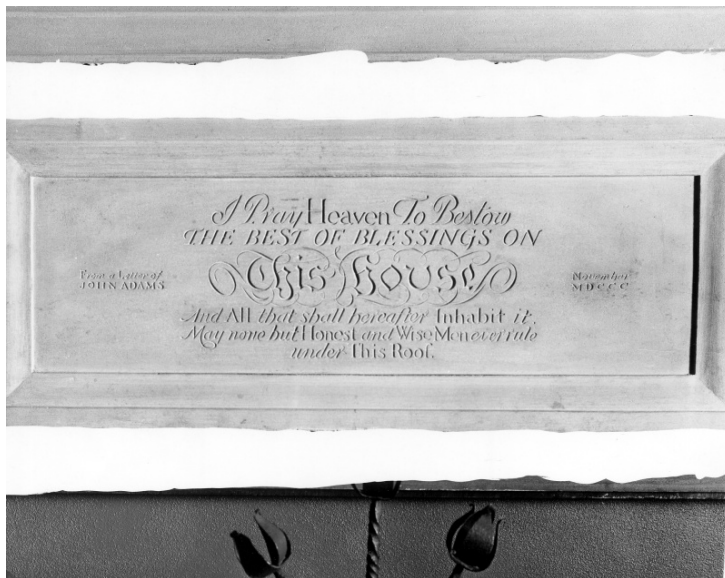 I Pray Heaven To Bestow
THE BEST OF BLESSINGS ON
This House
From a Letter of
JOHN ADAMS
November
MDCCC
And All that shall hereafter Inhabit it.
May none but Honest and Wise Men ever rule
under This Roof.